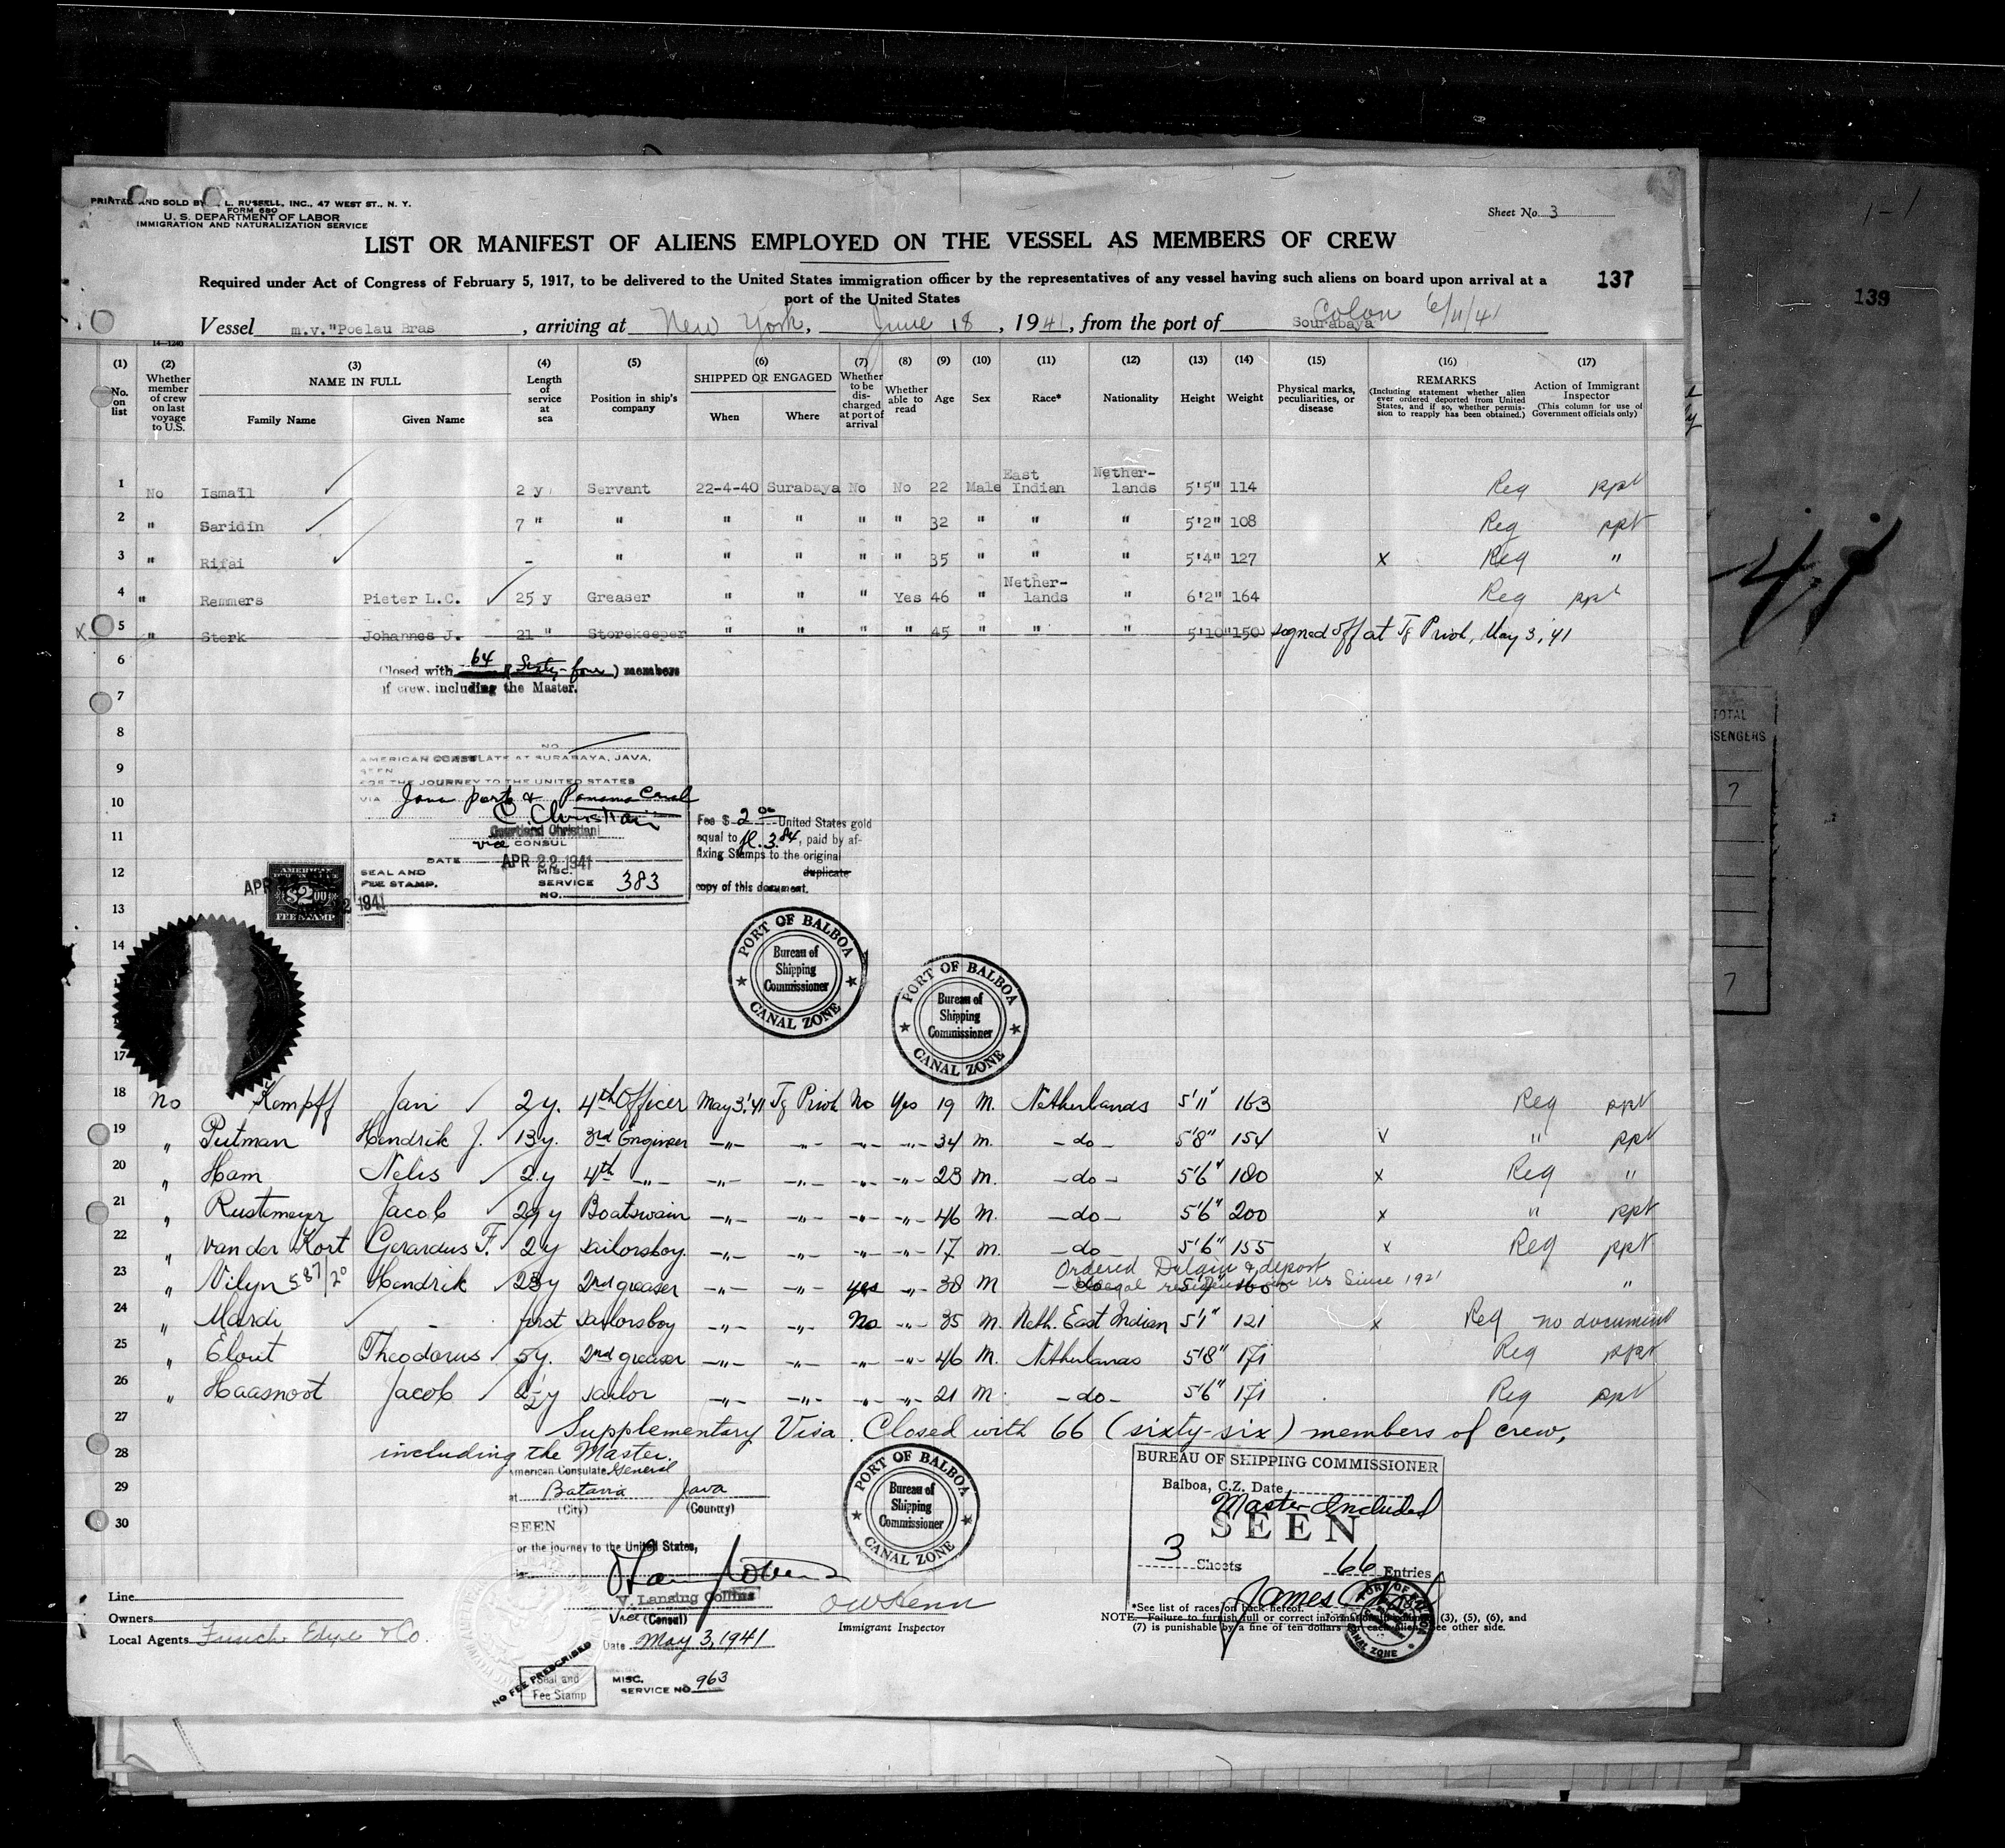 PRINTED AND SOLD BY L. RUSSELL, INC., 47 WEST ST., N. Y.
FORM 680
U. S. DEPARTMENT OF LABOR
IMMIGRATION AND NATURALIZATION SERVICE
Sheet No. 3
LIST OR MANIFEST OF ALIENS EMPLOYED ON THE VESSEL AS MEMBERS OF CREW
Required under Act of Congress of February 5, 1917, to be delivered to the United States immigration officer by the representatives of any vessel having such aliens on board upon arrival at a
port of the United States
137
139
Vessel m.v."Poelau Bras , arriving at New York, June 18 , 1941, from the port of Sourabaya Colon 6/11/41
14-1240
(1) (2) (3) (4) (5) (6) (7) (8) (9) (10) (11) (12) (13) (14) (15) (16) (17)
No. on list
Whether member of crew on last voyage to U.S.
NAME IN FULL
Family Name Given Name
Length of service at sea
Position in ship's company
SHIPPED OR ENGAGED
When Where
Whether to be discharged at port of arrival
Whether able to read
Age Sex Race* Nationality Height Weight
Physical marks, peculiarities, or disease
REMARKS
(Including statement whether alien ever ordered deported from United States, and if so, whether permission to reapply has been obtained.)
Action of Immigrant Inspector
(This column for use of Government officials only)
1 No Ismail 2 y Servant 22-4-40 Surabaya No No 22 Male East Indian Nether-lands 5'5" 114 Reg ppt
2 " Saridin 7 " " " " " " 32 " " " 5'2" 108 Reg ppt
3 " Rifai - " " " " " 35 " " " 5'4" 127 x Reg "
4 " Remmers Pieter L.C. 25 y Greaser " " " Yes 46 " Nether-lands " 6'2" 164 Reg ppt
5 x " Sterk Johannes J. 21 " Storekeeper " " " " 45 " " " 5'10" 150 signed off at Tg Priok, May 3, '41
6
Closed with 64 (Sixty-four) members
of crew, including the Master.
7
8
NO.
9
AMERICAN CONSULATE AT SURABAYA, JAVA,
SEEN
FOR THE JOURNEY TO THE UNITED STATES
10
VIA Java ports & Panama Canal
C. Christiani
11
Courtland Christiani
vice CONSUL
DATE APR 22 1941
12
SEAL AND
FEE STAMP.
MISC.
SERVICE
NO. 383
Fee $ 2.00 United States gold
equal to fl. 3.84, paid by af-
fixing Stamps to the original
duplicate
copy of this document.
AMERICAN
$2.00
FEE STAMP
APR 22 1941
13
14
PORT OF BALBOA
Bureau of
Shipping
Commissioner
CANAL ZONE
PORT OF BALBOA
Bureau of
Shipping
Commissioner
CANAL ZONE
17
18 No Kempff Jan 2 y. 4th Officer May 3,'41 Tg Priok No Yes 19 M. Netherlands 5'11" 163 Reg ppt
19 " Putman Hendrik J. 13 y. 3rd Engineer -"- -"- -"- -"- 34 m. -do- 5'8" 154 x " ppt
20 " Ham Nelis 2 y 4th -"- -"- -"- -"- -"- 23 m. -do- 5'6" 180 x Reg "
21 " Rustemeyer Jacob 29 y Boatswain -"- -"- -"- -"- 46 M. -do- 5'6" 200 x " ppt
22 " van der Kort Gerardus F. 2 y sailorsboy. -"- -"- -"- -"- 17 m. -do- 5'6" 155 x Reg ppt
Ordered Detain & deport
23 " Vilyn 587/20 Hendrik 23 y 2nd greaser -"- -"- yes -"- 38 M -do- Illegal resident in US Since 1921 "
24 " Mardi - first sailorsboy -"- -"- No -"- 35 M. Neth. East Indian 5'1" 121 x Reg no document
25 " Elout Theodorus 5 y. 2nd greaser -"- -"- -"- -"- 46 M. Netherlands 5'8" 171 Reg ppt
26 " Haasnoot Jacob 2½ y sailor -"- -"- -"- -"- 21 M. -do- 5'6" 171 Reg ppt
27 Supplementary Visa. Closed with 66 (sixty-six) members of crew,
28 including the Master.
American Consulate General
29 at Batavia Java
(City) (Country)
30
SEEN
for the journey to the United States,
V. Lansing Collins
Vice (Consul)
Date May 3, 1941
NO FEE PRESCRIBED
Seal and
Fee Stamp
MISC.
SERVICE NO. 963
PORT OF BALBOA
Bureau of
Shipping
Commissioner
CANAL ZONE
Immigrant Inspector
BUREAU OF SHIPPING COMMISSIONER
Balboa, C.Z. Date
Master Included
SEEN
3 Sheets 66 Entries
James
Line
Owners
Local Agents Funch Edye & Co.
*See list of races on back hereof.
NOTE.—Failure to furnish full or correct information in columns (3), (5), (6), and
(7) is punishable by a fine of ten dollars for each alien. See other side.
TOTAL
SENGERS
7
7